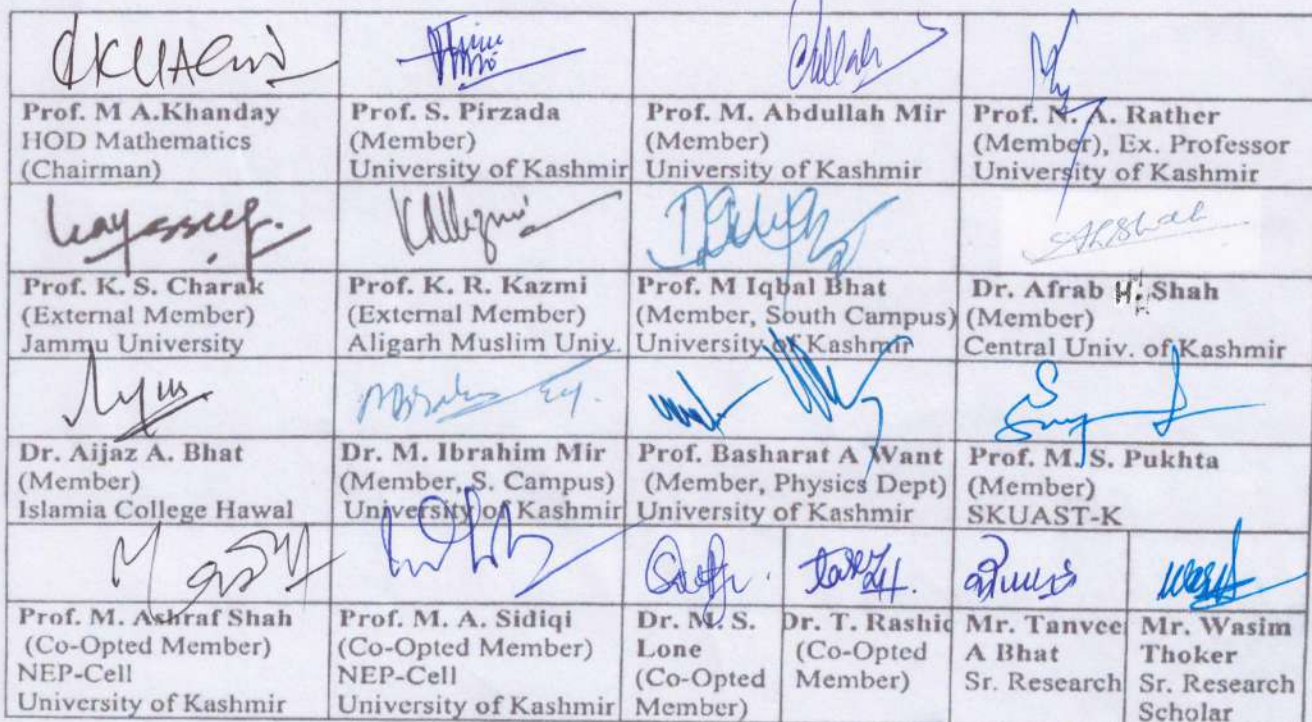 Prof. M A.Khanday
HOD Mathematics
(Chairman)
Prof. S. Pirzada
(Member)
University of Kashmir
Prof. M. Abdullah Mir
(Member)
University of Kashmir
Prof. N. A. Rather
(Member), Ex. Professor
University of Kashmir
Prof. K. S. Charak
(External Member)
Jammu University
Prof. K. R. Kazmi
(External Member)
Aligarh Muslim Univ.
Prof. M Iqbal Bhat
(Member, South Campus)
University of Kashmir
Dr. Afrab H. Shah
(Member)
Central Univ. of Kashmir
Dr. Aijaz A. Bhat
(Member)
Islamia College Hawal
Dr. M. Ibrahim Mir
(Member, S. Campus)
University of Kashmir
Prof. Basharat A Want
(Member, Physics Dept)
University of Kashmir
Prof. M. S. Pukhta
(Member)
SKUAST-K
Prof. M. Ashraf Shah
(Co-Opted Member)
NEP-Cell
University of Kashmir
Prof. M. A. Sidiqi
(Co-Opted Member)
NEP-Cell
University of Kashmir
Dr. M. S.
Lone
(Co-Opted
Member)
Dr. T. Rashid
(Co-Opted
Member)
Mr. Tanvee
A Bhat
Sr. Research
Mr. Wasim
Thoker
Sr. Research
Scholar